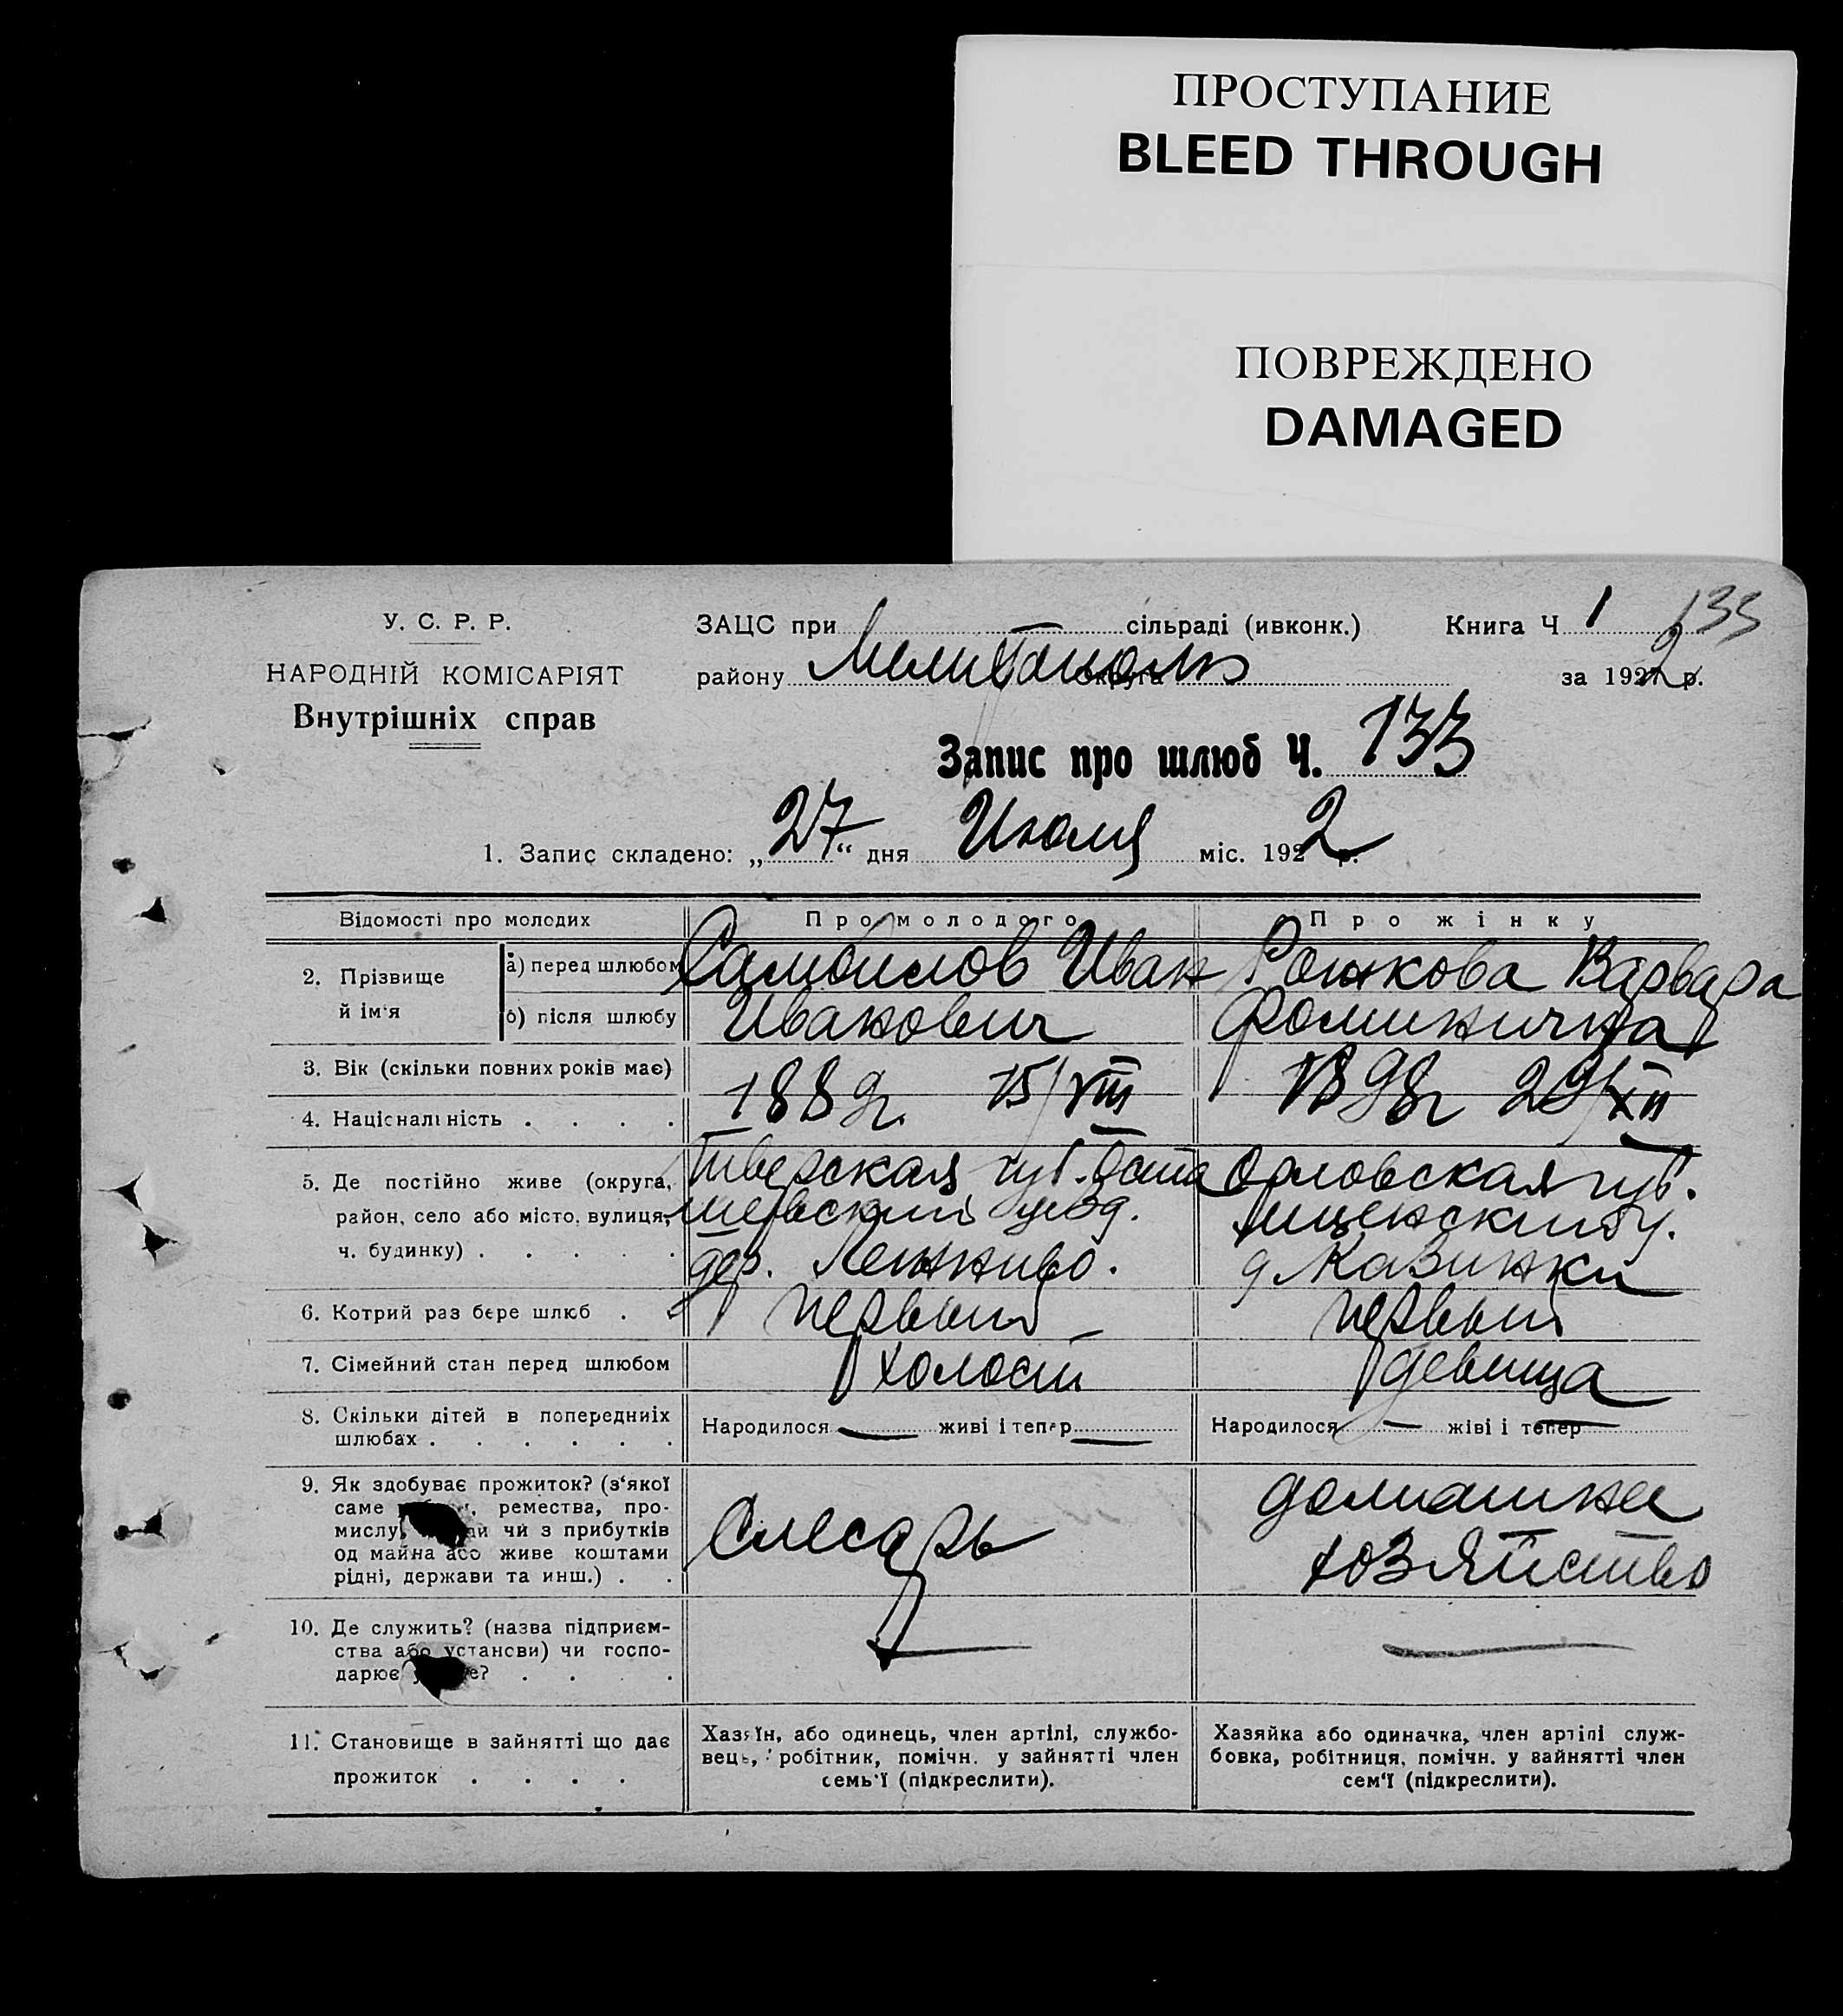 ПРОСТУПАНИЕ
BLEED THROUGH
ПОВРЕЖДЕНО
DAMAGED
У. С. Р. Р.
НАРОДНІЙ КОМІСАРІЯТ
Внутрішніх справ
ЗАЦС при сільраді (ивконк.)
району Мелитополь округа
Книга Ч 1 133
за 1922 р.
Запис про шлюб Ч. 133
1. Запис складено: „27“ дня Июля міс. 1922 р.
Відомості про молодих Про молодого Про жінку
2. Прізвище й ім'я
а) перед шлюбом Самойлов Иван Рожкова Варвара
б) після шлюбу Иванович Фоминична
3. Вік (скільки повних років має) 1889г. 15/VIII 1898г 29/XII
4. Національність . . . .
5. Де постійно живе (округа, Тверская губ. Орловская губ.
район, село або місто, вулиця, уезд. Мценский у.
ч. будинку) . . . . . дер. д Казинки
6. Котрий раз бере шлюб . . первый первый
7. Сімейний стан перед шлюбом холост девица
8. Скільки дітей в попередниіх Народилося — живі і тепер — Народилося — жіві і тепер —
шлюбах . . . . . .
9. Як здобуває прожиток? (з'якої домашнее
саме ремества, про-
мислу, чи з прибутків Слесарь
од майна або живе коштами хозяйство
рідні, держави та инш.) . .
10. Де служить? (назва підприєм-
ства або установи) чи госпо- — —
дарює . . . .
11. Становище в зайнятті що дає
прожиток . . . .
Хазяїн, або одинець, член артілі, службо-
вець, робітник, помічн. у зайнятті член
семь'ї (підкреслити).
Хазяйка або одиначка, член артілі служ-
бовка, робітниця, помічн. у зайнятті член
сем'ї (підкреслити).